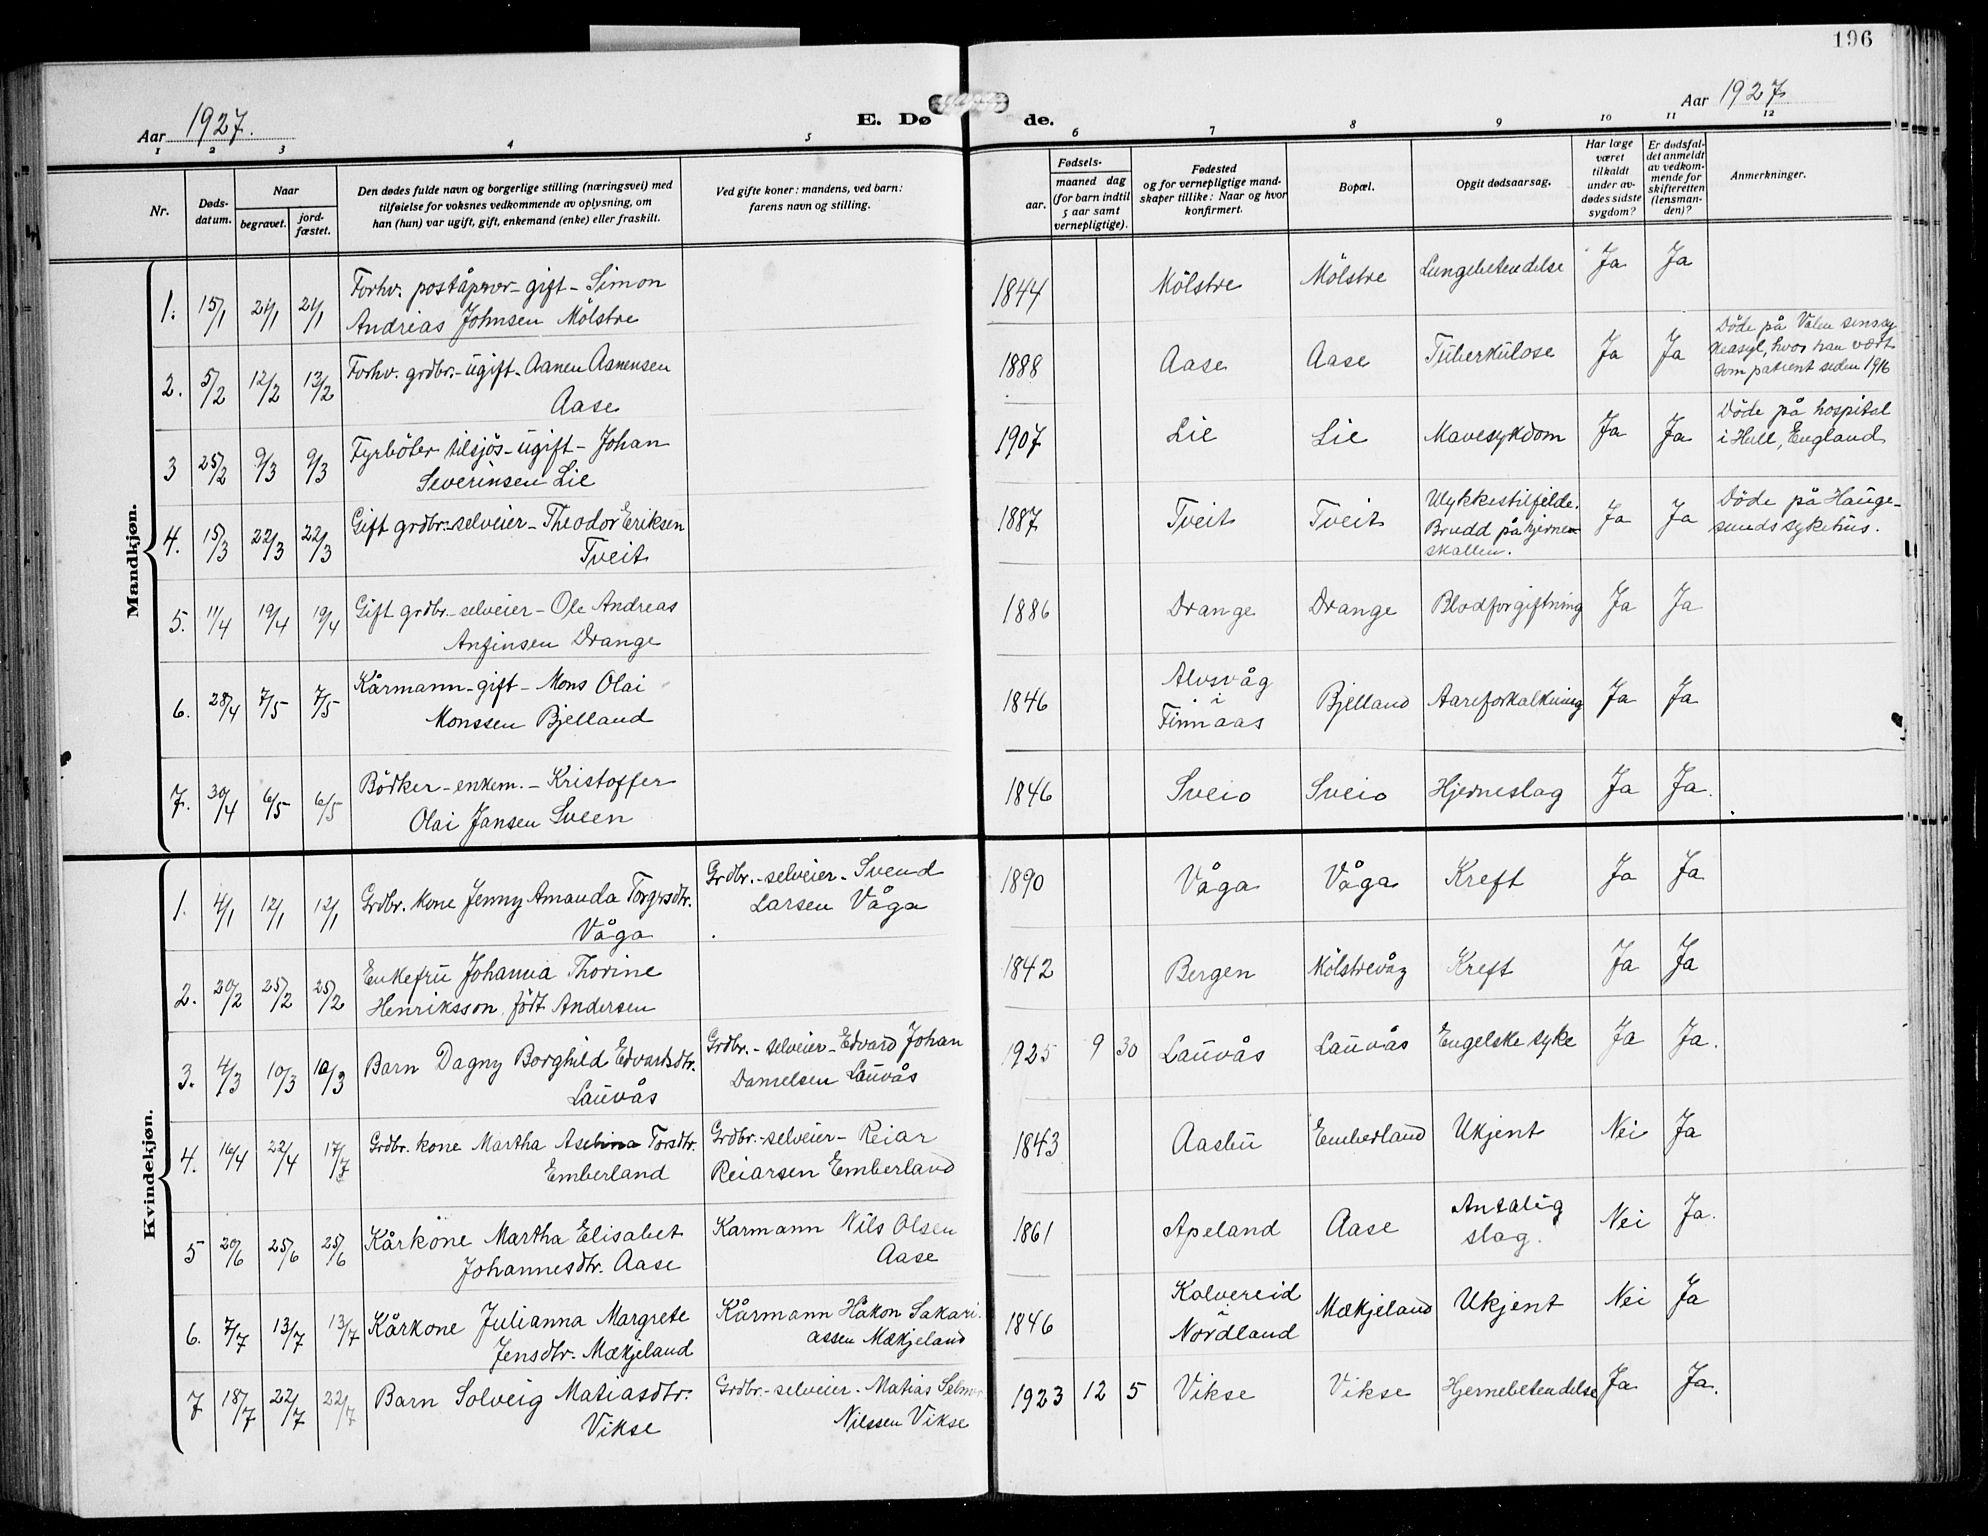 196
Aar 1927.
E. Dø de.
Aar 1927
1 2 3 4 5 6 7 8 9 10 11 12
Nr.
Døds-
datum.
Naar
begravet.
jord-
fæstet.
Den dødes fulde navn og borgerlige stilling (næringsvei) med
tilføielse for voksnes vedkommende av oplysning, om
han (hun) var ugift, gift, enkemand (enke) eller fraskilt.
Ved gifte koner: mandens, ved barn:
farens navn og stilling.
Fødsels-
aar.
maaned dag
(for barn indtil
5 aar samt
vernepligtige).
Fødested
og for vernepligtige mand-
skaper tillike: Naar og hvor
konfirmert.
Bopæl.
Opgit dødsaarsag.
Har læge
været
tilkaldt
under av-
dødes sidste
sygdom?
Er dødsfal-
det anmeldt
av vedkom-
mende for
skifteretten
(lensman-
den)?
Anmerkninger.
Mandkjøn.
1. 15/1 21/1 21/1 Forhv. poståpner - gift - Simon
Andreas Johnsen Mölstre
1844 Mölstre Mölstre Lungebetendelse Ja Ja
2. 5/2 12/2 13/2 Forhv. grdbr. - ugift - Aanen Aanensen
Aase
1888 Aase Aase Tuberkulose Ja Ja Döde på Valen sinssy-
keasyl, hvor han vært
som patient siden 1916
3 25/2 9/3 9/3 Fyrböter tilsjös - ugift - Johan
Severinsen Lie
1907 Lie Lie Mavesykdom Ja Ja Döde på hospital
i Hull, England
4. 15/3 22/3 22/3 Gift grdbr. - selveier - Theodor Eriksen
Tveit
1887 Tveit Tveit Ulykkestilfelde.
Brudd på hjerne-
skallen. Ja Ja Döde på Hauge-
sunds sykehus.
5. 11/4 19/4 19/4 Gift grdbr. - selveier - Ole Andreas
Anfinsen Drange
1886 Drange Drange Blodforgiftning Ja Ja
6. 28/4 7/5 7/5 Kårmann - gift - Mons Olai
Monssen Bjelland
1846 Alvsvåg
i
Finnaas Bjelland Aareforkalkning Ja Ja
7. 30/4 6/5 6/5 Bödker - enkem. - Kristoffer
Olai Jansen Sveen
1846 Sveio Sveio Hjerneslag Ja Ja.
Kvindekjøn.
1. 4/1 12/1 12/1 Grdbr. kone Jenny Amanda Torgrsdtr.
Våga
Grdbr. - selveier - Svend
Larsen Våga
1890 Våga Våga Kreft Ja Ja
2. 20/2 25/2 25/2 Enkefru Johanna Thorine
Henriksson födt Andersen
1842 Bergen Mölstrevåg Kreft Ja Ja
3. 4/3 10/3 10/3 Barn Dagny Borghild Edvardsdtr.
Lauvås
Grdbr. - selveier - Edvard Johan
Danielsen Lauvås
1925 9 30 Lauvås Lauvås Engelske syke Ja Ja.
4. 16/4 22/4 17/7 Grdbr. kone Martha Aselina Torsdtr.
Emberland
Grdbr. - selveier - Reiar
Reiarsen Emberland
1843 Aasbu Emberland Ukjent Nei Ja
5 20/6 25/6 25/6 Kårkone Martha Elisabet
Johannesdtr. Aase
Karmann Nils Olsen
Aase
1861 Apeland Aase Antalig
slag. Nei Ja.
6. 7/7 13/7 13/7 Kårkone Julianna Margrete
Jensdtr. Mækjeland
Kårmann Håkon Sakari-
assen Mækjeland
1846 Kalvereid
i
Nordland Mækjeland Ukjent Nei Ja
7 18/7 22/7 22/7 Barn Solveig Matiasdtr.
Vikse
Grdbr. - selveier - Matias Selmer
Nilssen Vikse
1923 12 5 Vikse Vikse Hjernebetendelse Ja Ja.